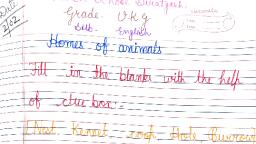 School Suratgarh
Date
2/02
Grade - U.K.G
Sub. English
Homes of animals
Fill in the blanks with the help
of clue box.
Nest Kennel Hole Burrow